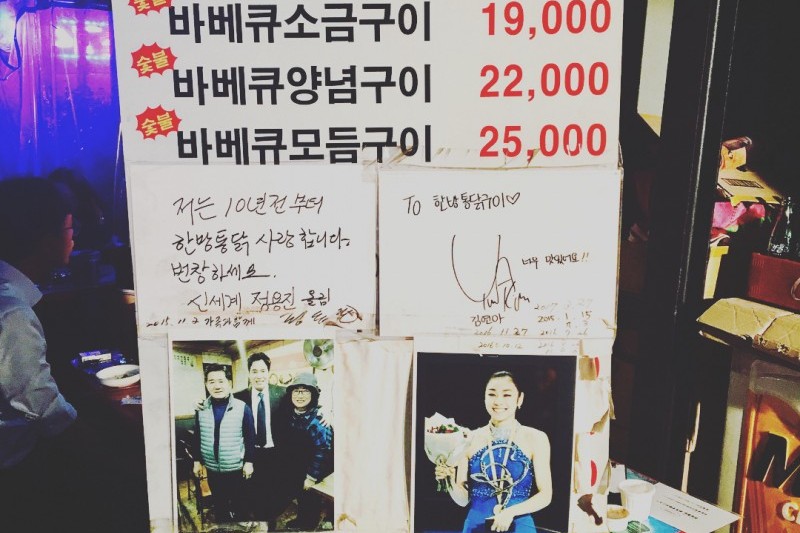 숯불 바베큐소금구이 19,000
숯불 바베큐양념구이 22,000
숯불 바베큐모듬구이 25,000
저는 10년전 부터
한방통닭 사랑합니다.
번창하세요.
신세계 정용진 올림
2015.11.2 가족과함께
TO 한방통닭구이♡
너무 맛있어요!!
김연아
11.27